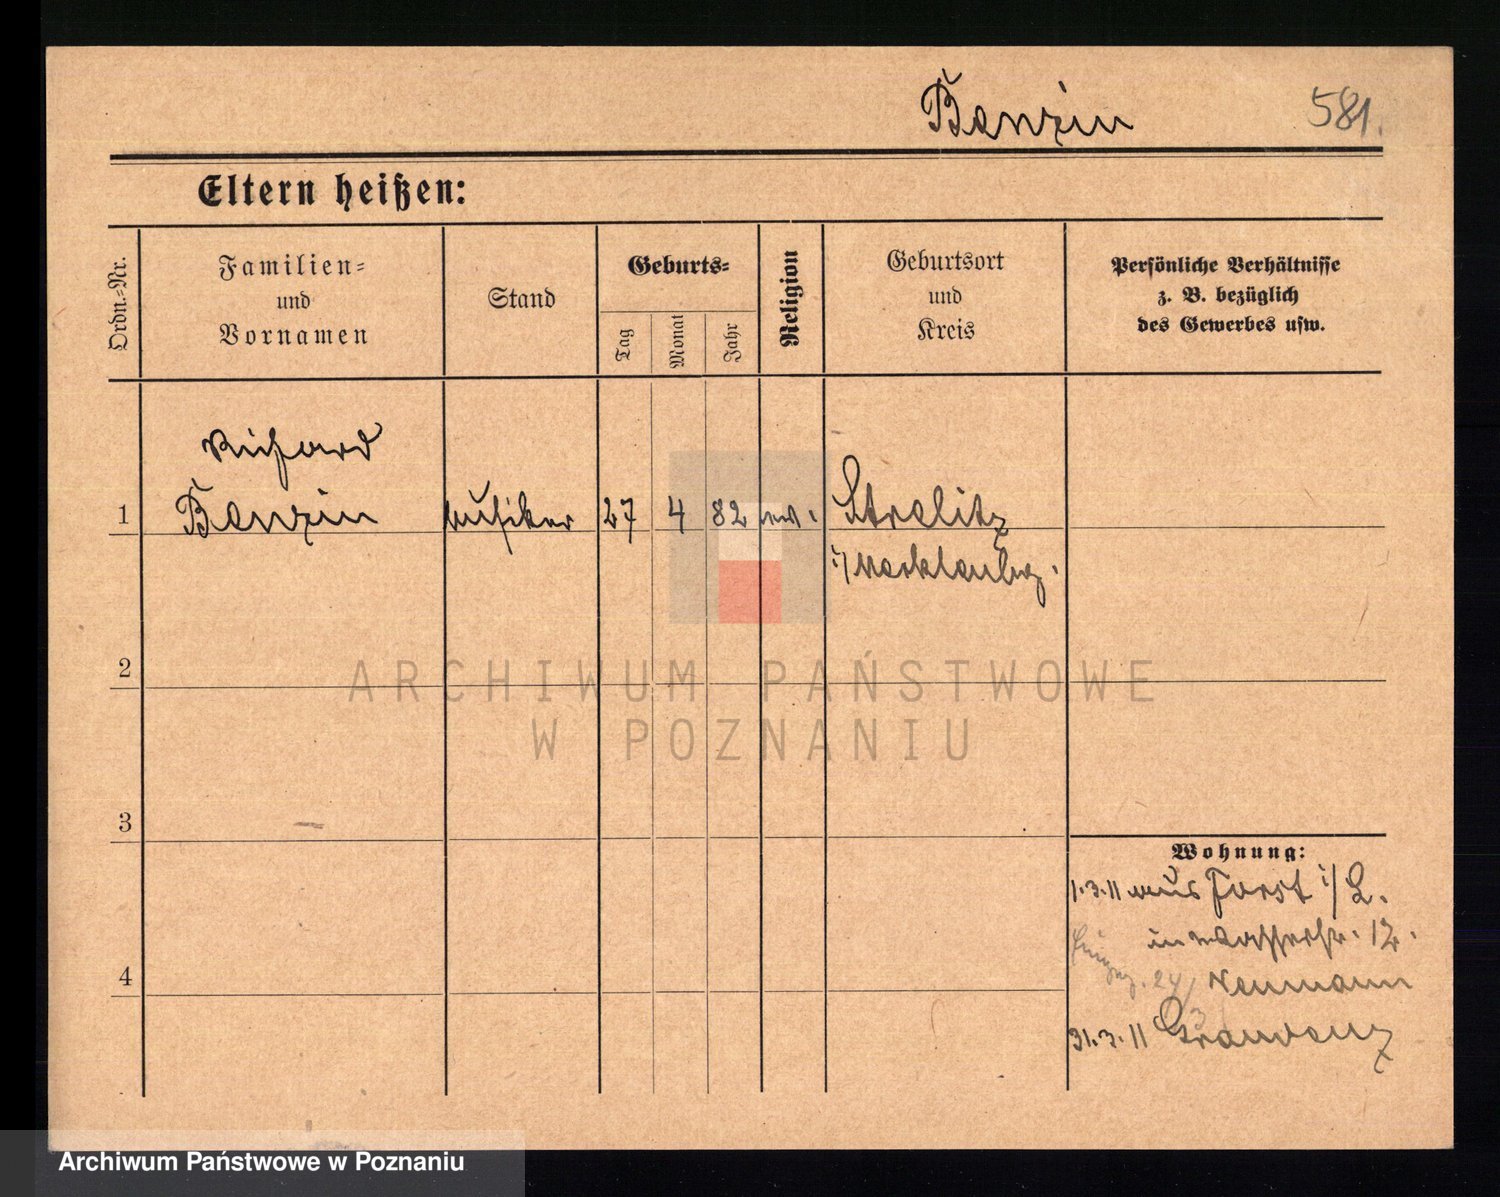 Banzin
581.
Eltern heißen:
Ordn.=Nr.
Familien=
und
Vornamen
Stand
Geburts=
Tag
Monat
Jahr
Religion
Geburtsort
und
Kreis
Persönliche Verhältnisse
z. B. bezüglich
des Gewerbes usw.
Richard
1 Banzin Musiker 27 4 82 ev. Strelitz
i/Mecklenbrg.
2
ARCHIWUM PAŃSTWOWE
W POZNANIU
3
Wohnung:
1.3.11 aus Forst i/L.
in 12.
4
24/3 Neumann
31.3.11 Graudenz
Archiwum Państwowe w Poznaniu